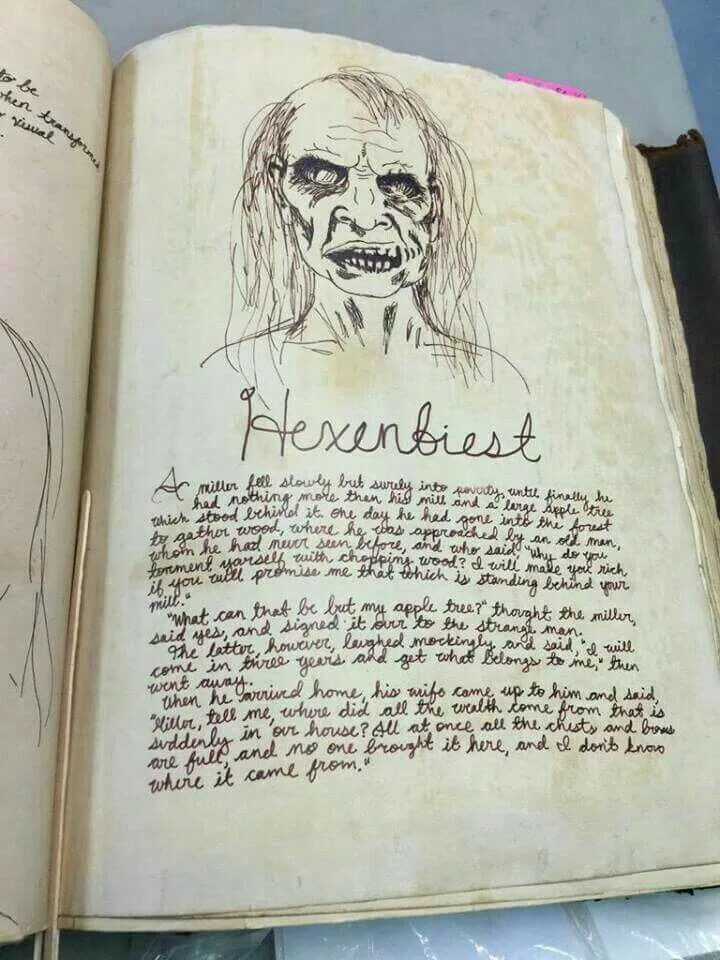 to be
when transformed
visual
Hexenbiest
A miller fell slowly but surely into poverty, until finally he
had nothing more than his mill and a large apple tree
which stood behind it. One day he had gone into the forest
to gather wood, where he was approached by an old man,
whom he had never seen before, and who said, "Why do you
torment yarself with chopping wood? I will make you rich,
if you will promise me that which is standing behind your
mill."
"What can that be but my apple tree?" thought the miller,
said yes, and signed it ovr to the strange man.
The latter, however, laughed mockingly and said, "I will
come in three years and get what belongs to me," then
went away.
When he arrived home, his wife came up to him and said,
"Miller, tell me, where did all the wealth come from that is
suddenly in our house? All at once all the chests and boxes
are full, and no one brought it here, and I don't know
where it came from."